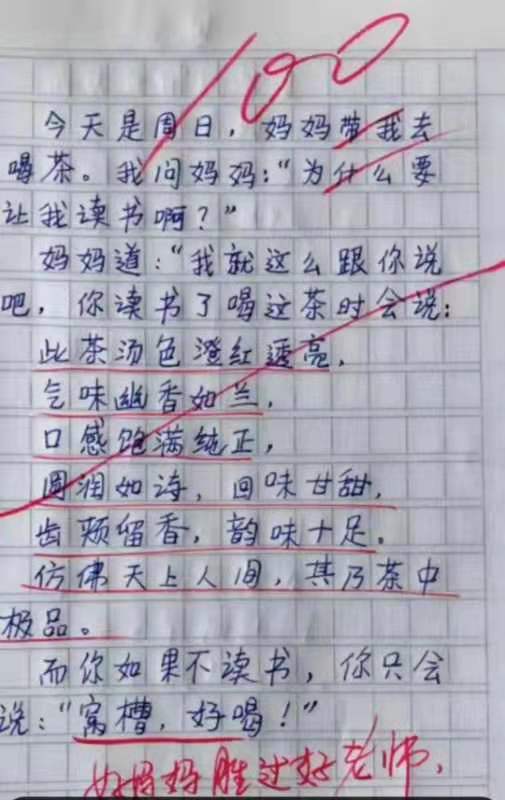 100
今天是周日，妈妈带我去
喝茶。我问妈妈：“为什么要
让我读书啊？”
妈妈道：“我就这么跟你说
吧，你读书了喝这茶时会说：
此茶汤色澄红透亮，
气味幽香如兰，
口感饱满纯正，
圆润如诗，回味甘甜，
齿颊留香，韵味十足。
仿佛天上人间，其乃茶中
极品。
而你如果不读书，你只会
说：“窝槽，好喝！”
好妈妈胜过好老师，